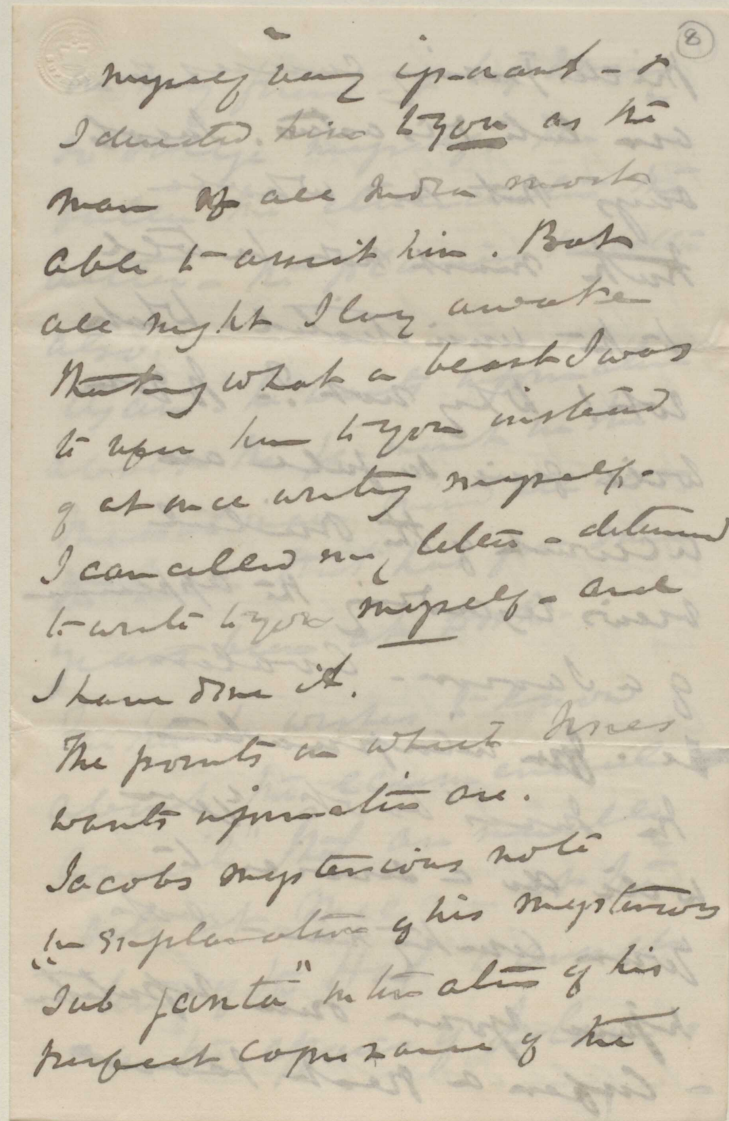 8
myself very ignorant - &
I directed him to you as the
man of all India most
able to assist him. But
all night I lay awake
thinking what a beast I was
to refer him to you instead
of at once writing myself -
I cancelled my letter - determined
to write to you myself - and
I have done it.
The points on which
wants information are.
Jacobs mysterious note
in explanation of his mysterious
"Sub janta" intimation of his
perfect cognizance of the